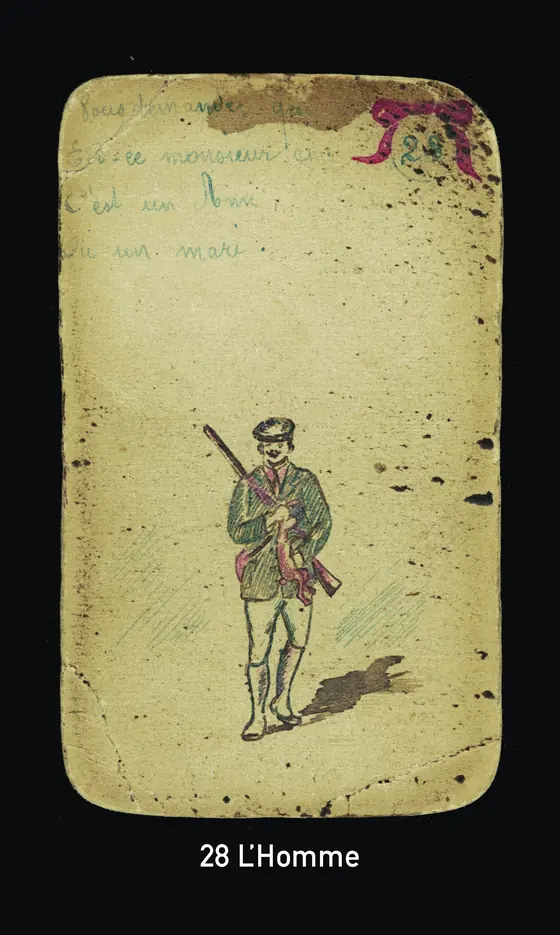 Vous demandez qui
Est-ce monsieur
C'est un
Ou un mari.
28
28 L'Homme